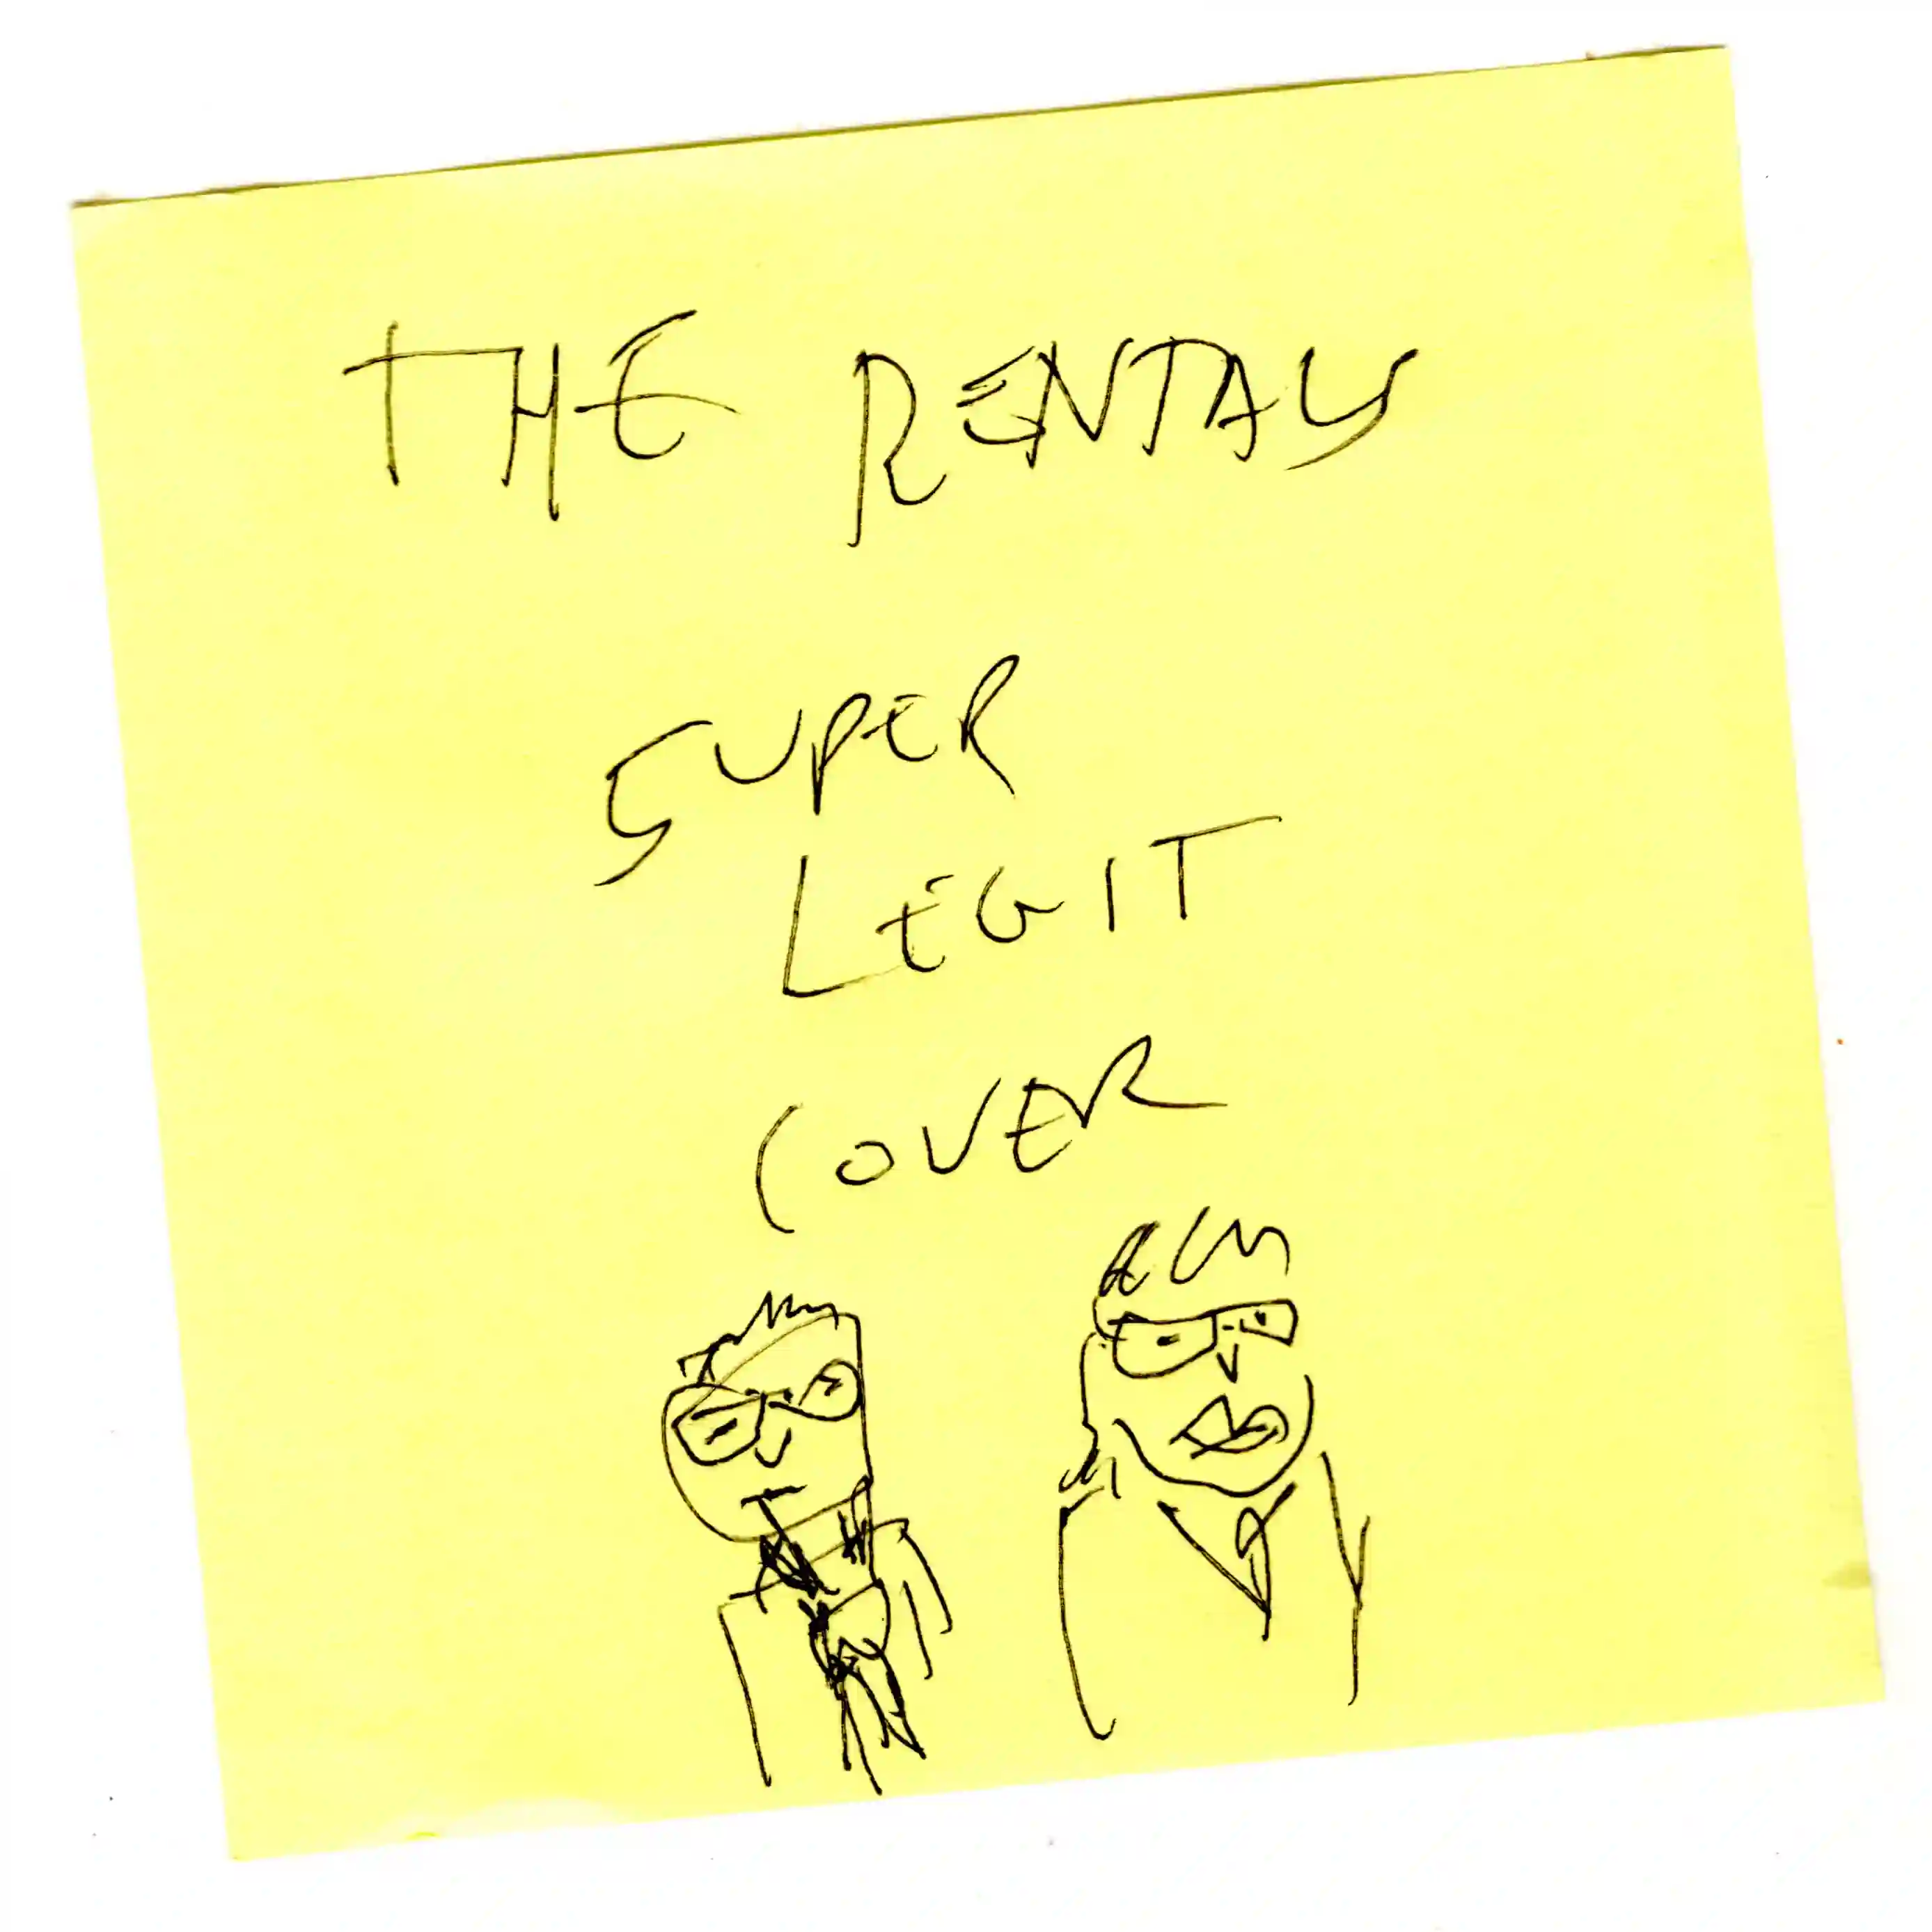 THE RENTALS
SUPER
LEGIT
COVER